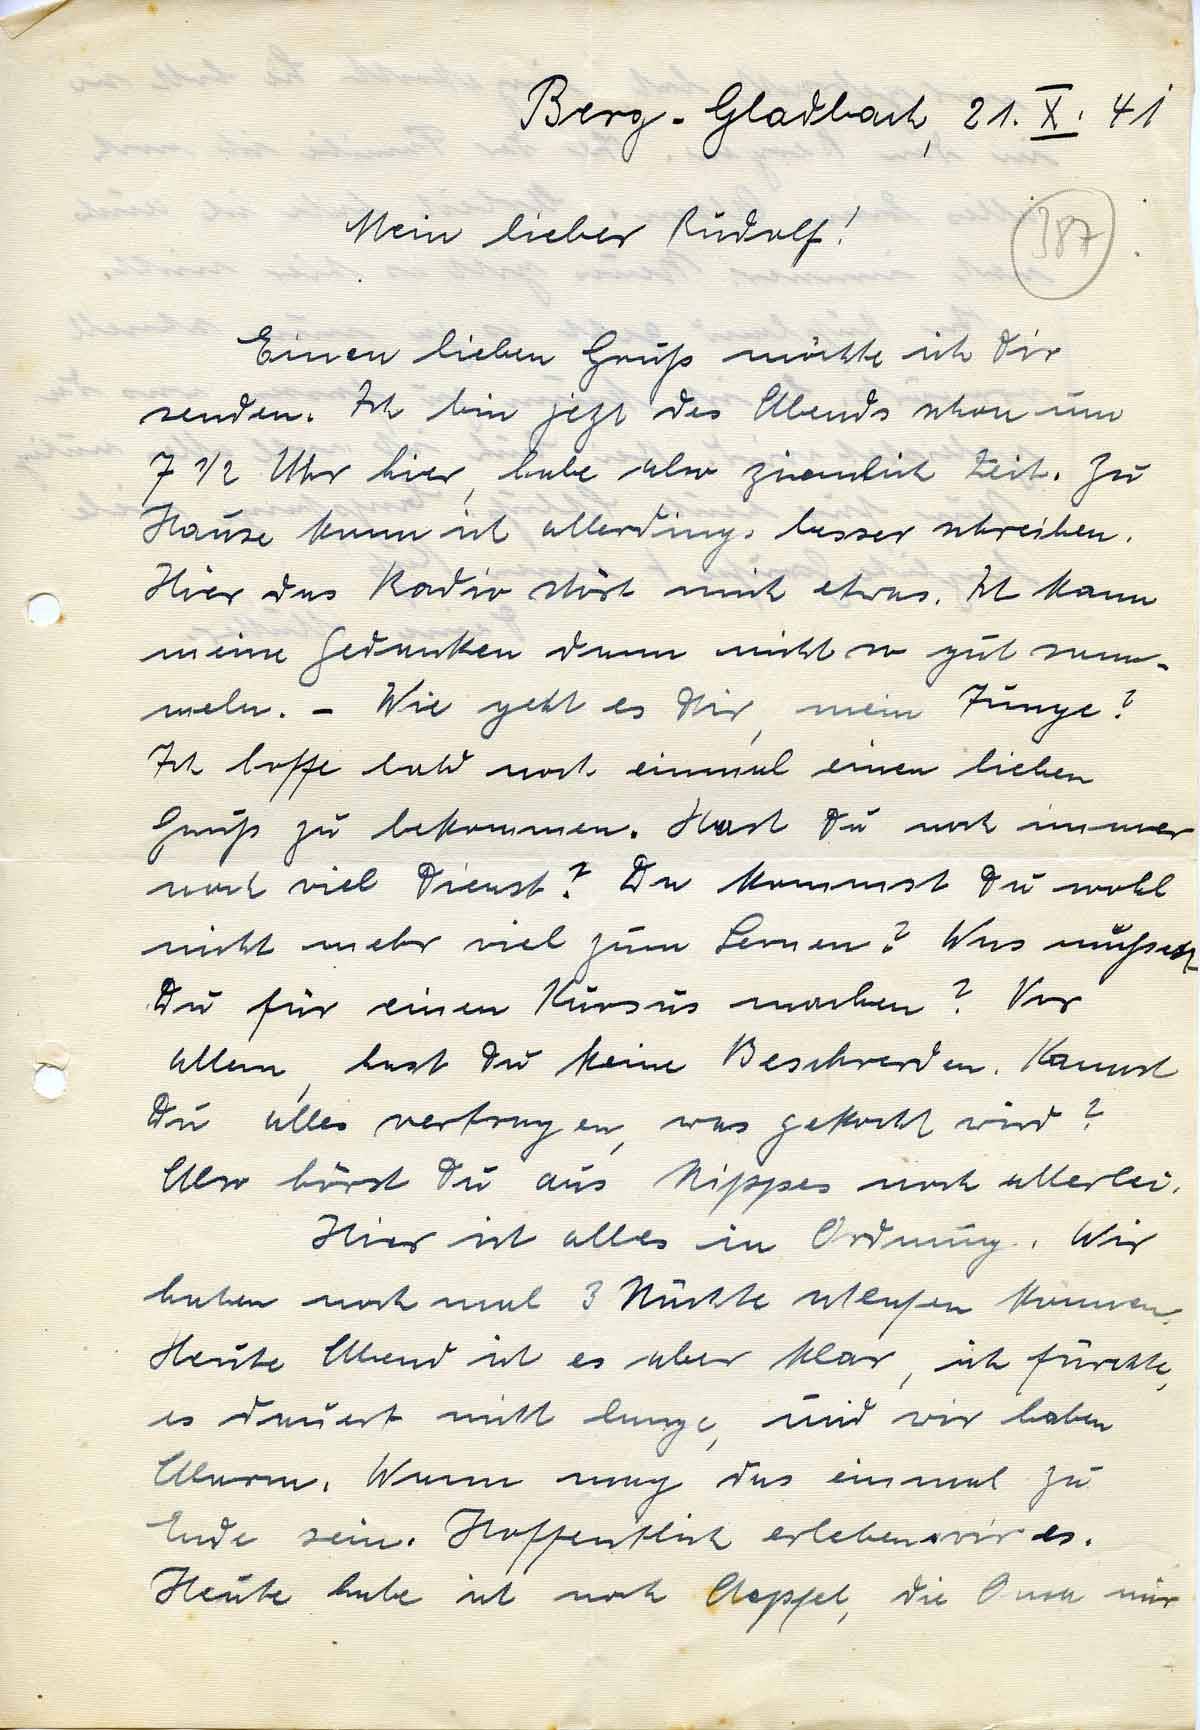 Berg.-Gladbach, 21. X. 41
387
Mein lieber Rudolf!
Einen lieben Gruß möchte ich Dir
senden. Ich bin jetzt des Abends schon um
7 1/2 Uhr hier, habe also ziemlich Zeit. Zu
Hause kann ich allerdings besser schreiben.
Hier das Radio stört mich etwas. Ich kann
meine Gedanken dann nicht so gut sam-
meln. - Wie geht es Dir, mein Junge?
Ich hoffe bald noch einmal einen lieben
Gruß zu bekommen. Hast Du noch immer
noch viel Dienst? Da kommst Du wohl
nicht mehr viel zum Lernen? Was mußt
Du für einen Kursus machen? Vor
allem, hast Du keine Beschwerden. Kannst
Du alles vertragen, was gekocht wird?
Also hörst Du aus Nippes noch allerlei.
Hier ist alles in Ordnung. Wir
haben noch mal 3 Nächte schlafen können.
Heute Abend ist es aber klar, ich fürchte,
es dauert nicht lange, und wir haben
Alarm. Wann mag das einmal zu
Ende sein. Hoffentlich erleben wir es.
Heute habe ich noch Aepfel, die Oma mir